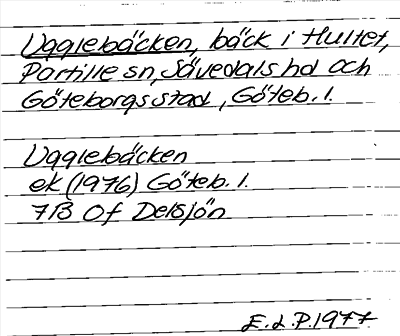 Ugglebäcken, bäck i Hultet,
Partille sn, Sävedals hd och
Göteborgs stad, Göteb. l.
Ugglebäcken
ek (1976) Göteb. l.
7B 0f Delsjön
E.L.P. 1977